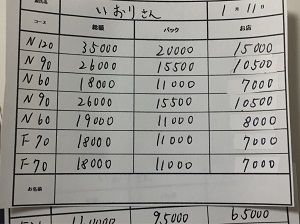 いおりさん 1月11日
コース 総額 バック お店
N120 35000 20000 15000
N90 26000 15500 10500
N60 18000 11000 7000
N90 26000 15500 10500
N60 19000 11000 8000
F70 18000 11000 7000
F70 18000 11000 7000
お名前
95000 65000